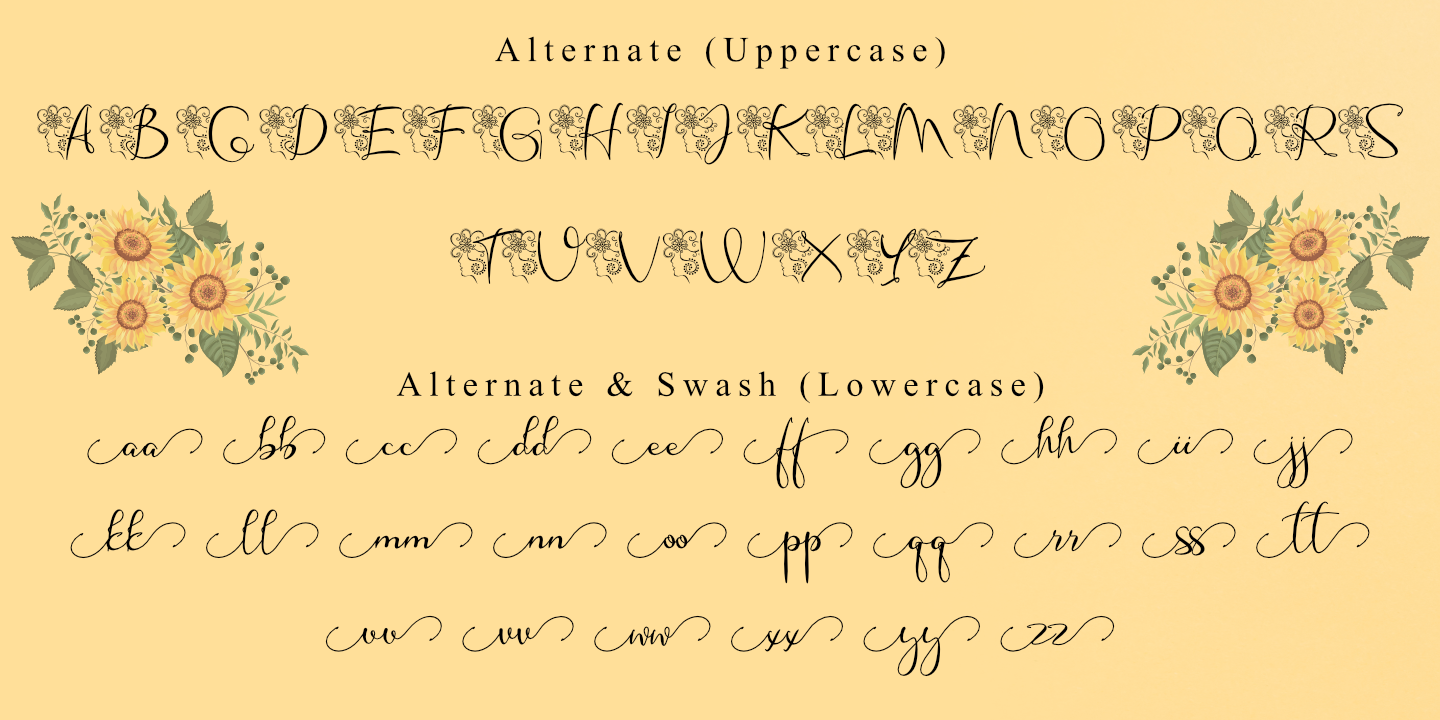 Alternate (Uppercase)
A B C D E F G H I J K L M N O P Q R S
T U V W X Y Z
Alternate & Swash (Lowercase)
aa bb cc dd ee ff gg hh ii jj
kk ll mm nn oo pp qq rr ss tt
vv vv ww xx yy zz